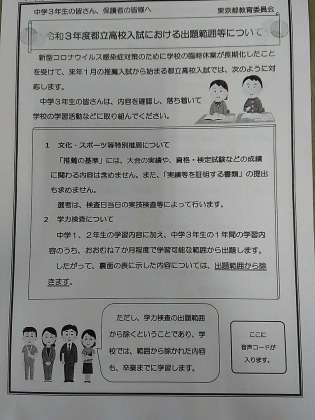 中学3年生の皆さん、保護者の皆様へ
東京都教育委員会
令和3年度都立高校入試における出題範囲等について
新型コロナウイルス感染症対策のために学校の臨時休業が長期化したこと
を受けて、来年1月の推薦入試から始まる都立高校入試では、次のように対
応します。
中学3年生の皆さんは、内容を確認し、落ち着いて
学校の学習活動などに取り組んでください。
1 文化・スポーツ等特別推薦について
「推薦の基準」には、大会の実績や、資格・検定試験などの成績
に関わる内容は含めません。また、「実績等を証明する書類」の提出
も求めません。
選考は、検査日当日の実技検査等によって行います。
2 学力検査について
中学1、2年生の学習内容に加え、中学3年生の1年間の学習内
容のうち、おおむね7か月程度で学習可能な範囲から出題します。
したがって、裏面の表に示した内容については、出題範囲から除
きます。
ただし、学力検査の出題範囲
から除くということであり、学
校では、範囲から除かれた内容
も、卒業までに学習します。
ここに
音声コードが
入ります。